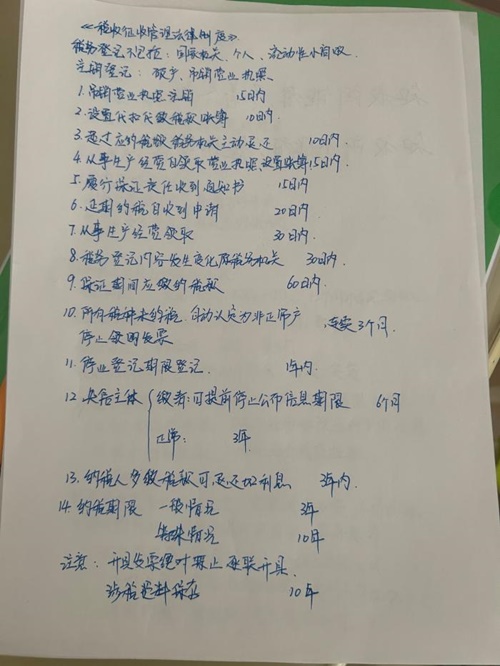 《税收征收管理法律制度》
税务登记不包括：国家机关、个人、流动性小商贩
注销登记：破产、吊销营业执照
1.吊销营业执照注销 15日内
2.设置代扣代缴税款账簿 10日内
3.超过应纳税额税务机关主动退还 10日内
4.从事生产经营自领取营业执照，设置账簿15日内
5.履行保证责任收到通知书 15日内
6.延期纳税自收到申请 20日内
7.从事生产经营领取 30日内
8.税务登记内容发生变化原税务机关 30日内
9.保证期间应缴纳税款 60日内
10.所有税种未纳税，自动认定为非正常户 连续3个月
停止领用发票
11.停业登记期限登记 1年内
12.失信主体 缴者：可提前停止公布信息期限 6个月
正常： 3年
13.纳税人多缴税款可退还加利息 3年内
14.纳税期限 一般情况 3年
特殊情况 10年
注意：开具发票 禁止 联开具
涉税资料保存 10年